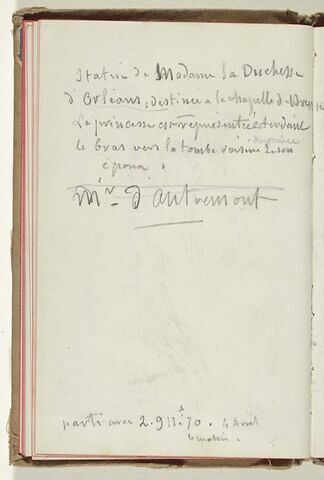 Statue de Madame la Duchesse
d'Orléans, destinée a la chapelle de Dreux
La princesse est représentée étendant
le bras vers la tombe voisine de son
époux.
Mr d'Antremont
parti avec 2.911f.70. 4 Avril
le matin.